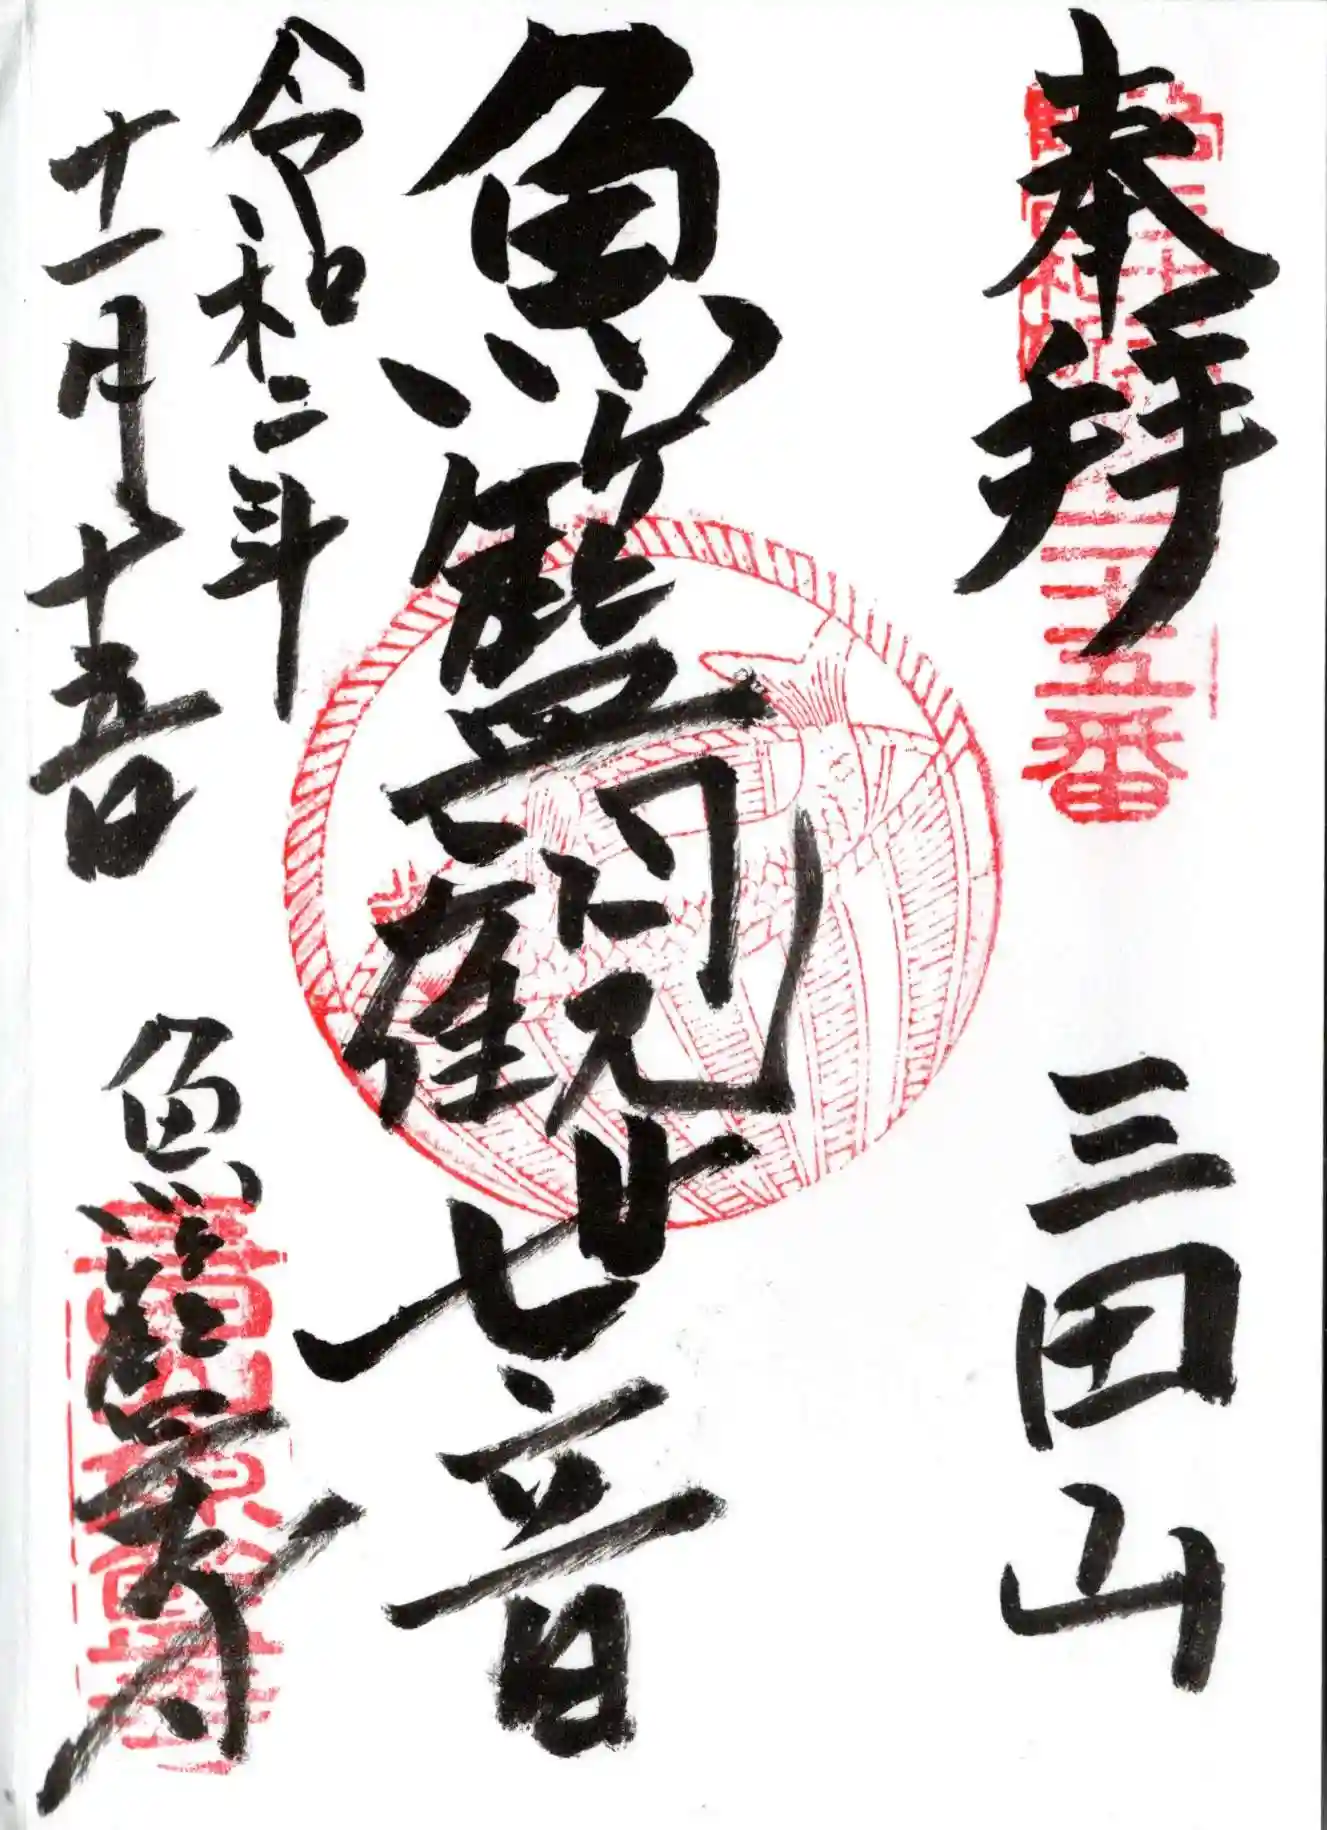 奉拝
三田山
魚籃観世音
令和二年
十一月十五日
魚籃寺
二十五番